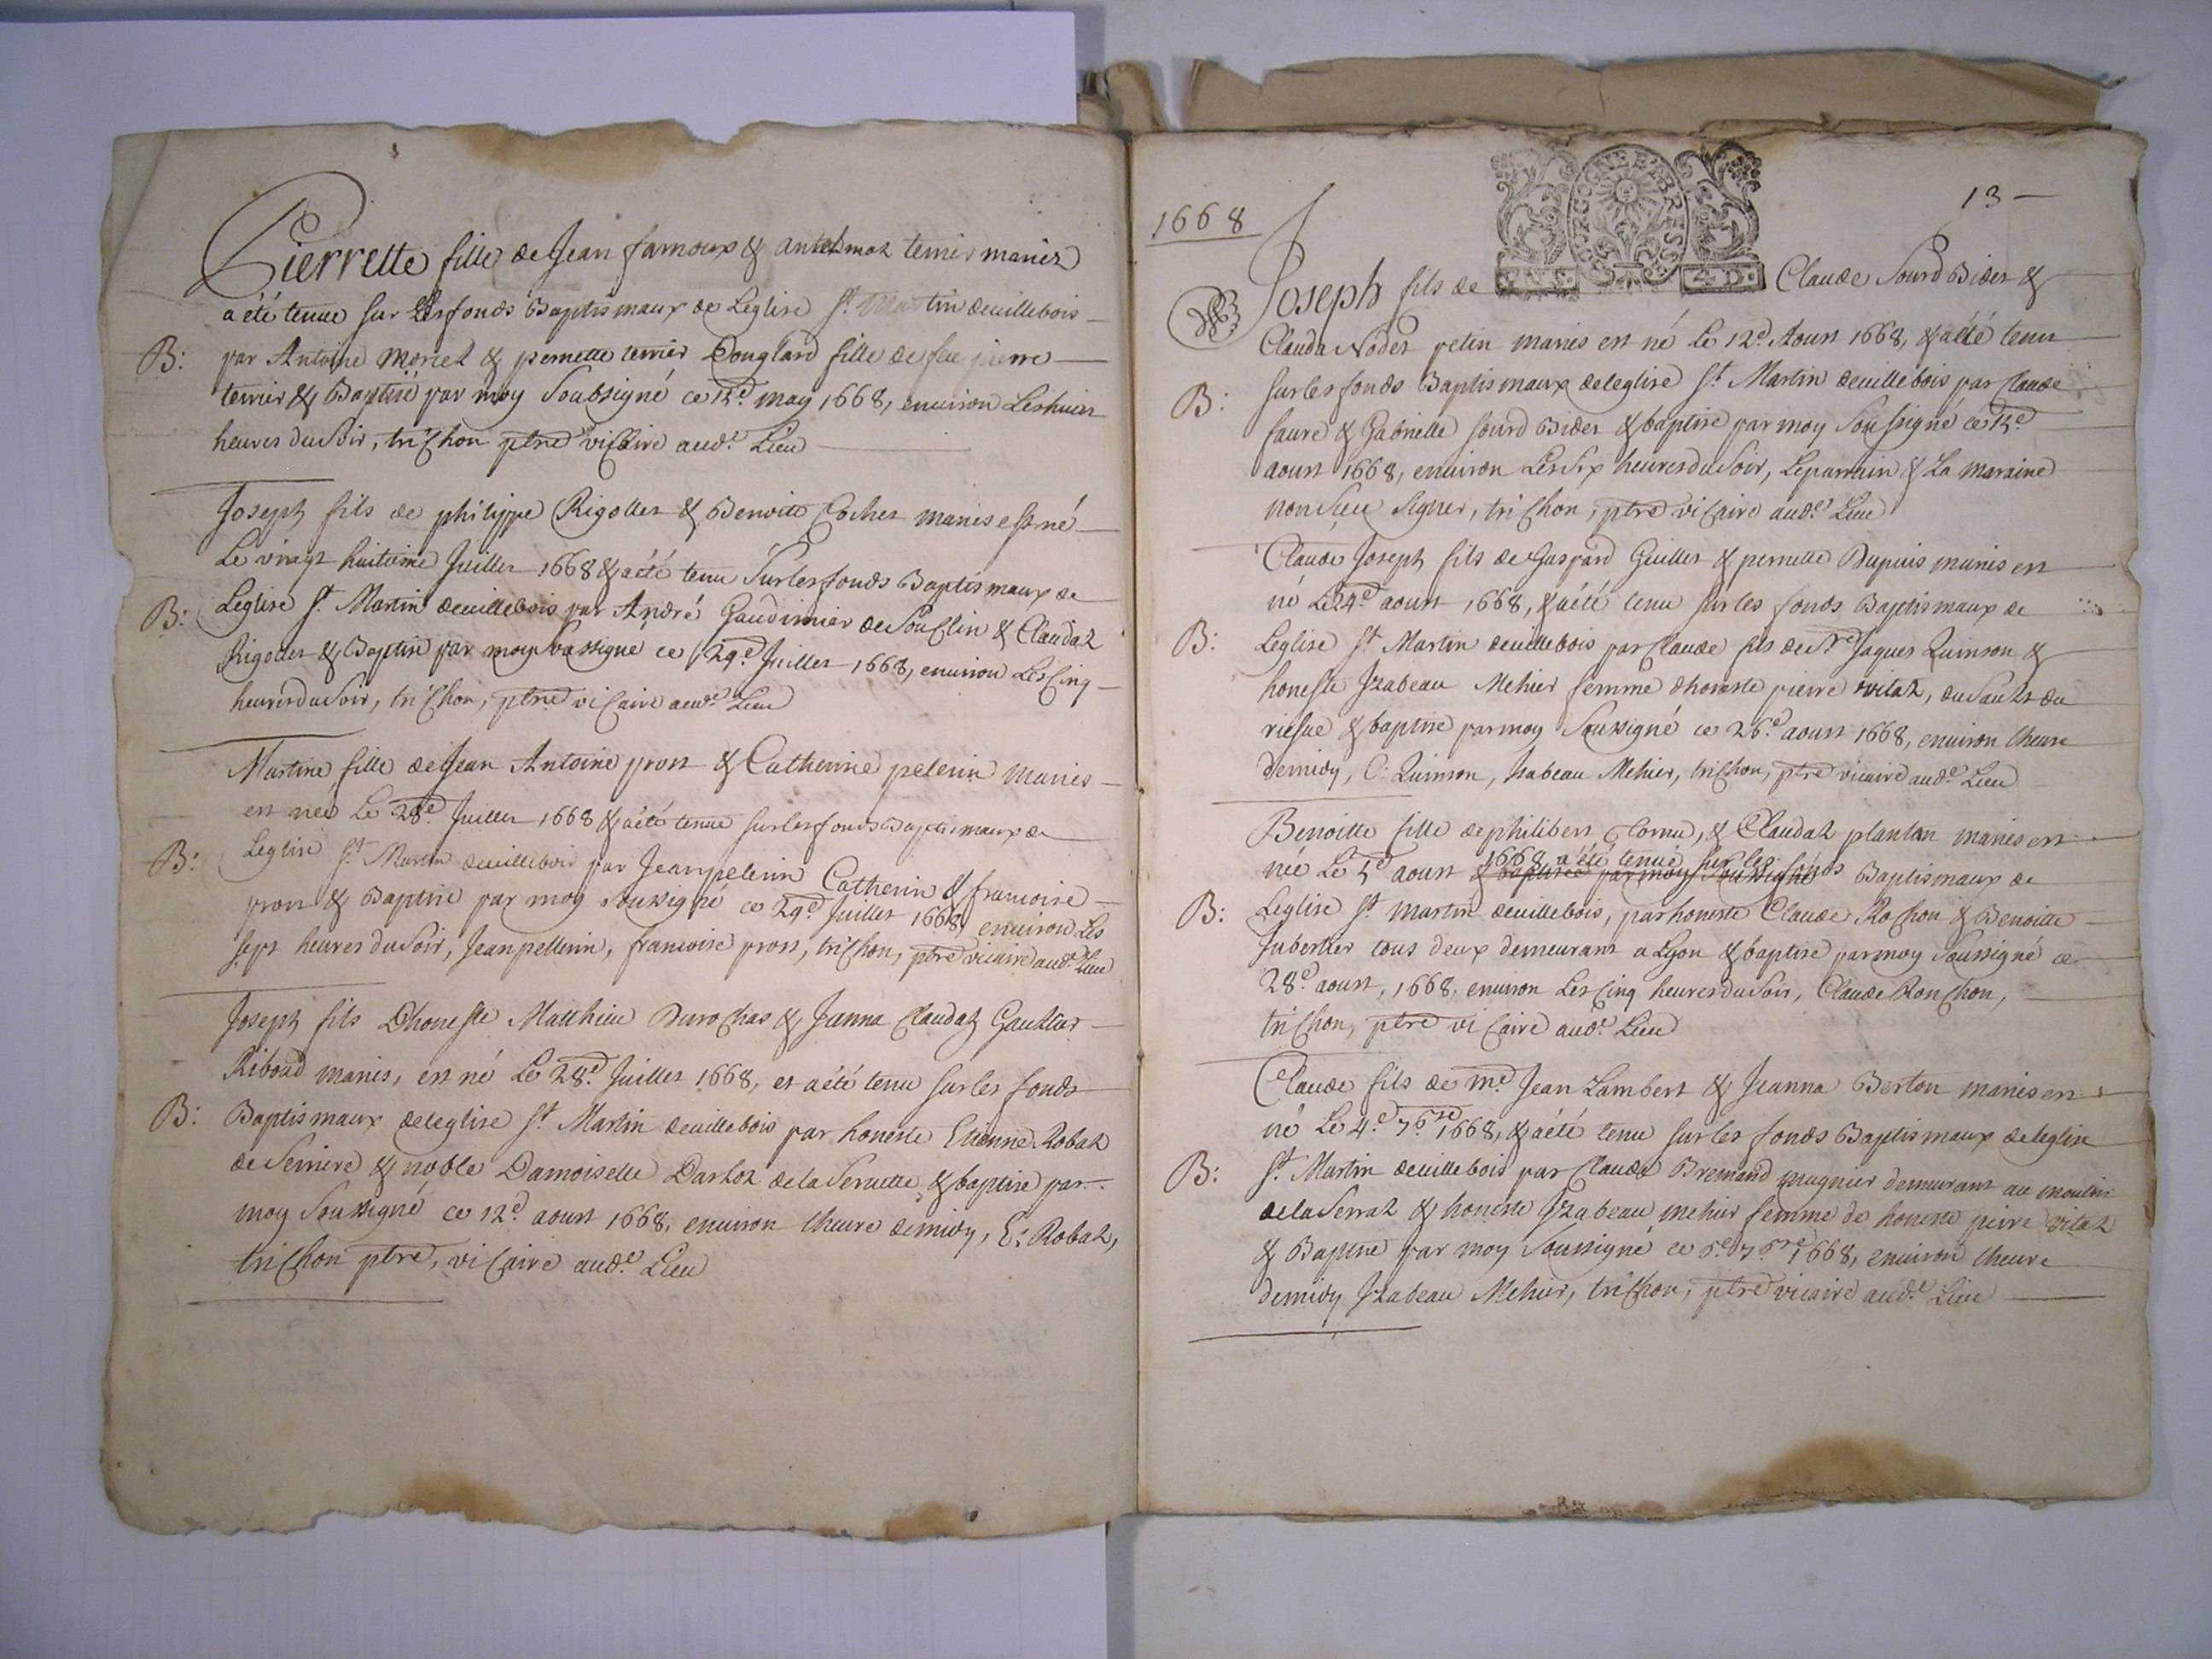 Pierrette fille de Jean farnoux & terrier mariez
a été tenue sur Les fonds Baptismaux de Leglise St. Martin deuillebois
B: par Antoine moriel & pernette terrier Douglard fille de feu pierre
terrier & Baptisé par moy Soubsigné ce 13e. may 1668, enuiron Leshuict
heures du Soir, trichon ptre vicaire aud.t Lieu
Joseph fils de philippe Rigollet & Benoitte Cochet mariés est né
Le vingt huitieme Juillet 1668 & a été tenu Sur les fonds Baptismaux de
B: Leglise St. Martin deuillebois par André Gaudinier de Souclin & Claudaz
Rigollet & Baptisé par moy Soussigné ce 29e. Juillet 1668, enuiron Les Cinq
heures du Soir, trichon, ptre vicaire aud.t Lieu
Martine fille de Jean Antoine prost & Catherine pelerin mariés
est née Le 28e. Juillet 1668 & a été tenue sur les fonds Baptismaux de
B: Leglise St. Martin deuillebois par Jean pelerin Catherin & francoise
prost & Baptisé par moy soussigné ce 29e. Juillet 1668, enuiron Les
sept heures du Soir, Jean pellerin, francoise prost, trichon, ptre vicaire aud.t Lieu
Joseph fils Dhoneste Matthieu Durochas & Janna Claudaz Gauthier
Riboud mariés, est né Le 28e. Juillet 1668, et a été tenu sur les fonds
B: Baptismaux de leglise St. Martin deuillebois par honeste Etienne Robat
de Serriere & noble Damoiselle Darloz de la Seruette & baptisé par
moy Soussigné ce 12e. aoust 1668, enuiron lheure de midy, E: Robat,
trichon ptre, vicaire aud.t Lieu
1668
13
Joseph fils de Claude Sourd Bidet &
Clauda Nodet petin mariés est né Le 12e. Aoust 1668, & a été tenu
B: sur les fonds Baptismaux de leglise St. Martin deuillebois par Claude
faure & Gabrielle sourd Bidet & baptisé par moy Soussigné ce 15e.
aoust 1668, enuiron Les Six heures du Soir, Le parrain & La maraine
non Sceu Signer, trichon, ptre vicaire aud.t Lieu
Claude Joseph fils de Gaspard Guillet & pernette Dupuis mariés est
né Le 24e. aoust 1668, & a été tenu sur les fonds Baptismaux de
B: Leglise St. Martin deuillebois par Claude fils de Sr. Jaques Quinson &
honeste Izabeau Mehier femme dhoneste pierre vitaz, du Sault du
& baptisé par moy Soussigné ce 26e. aoust 1668, enuiron lheure
demidy, C. Quinson, Isabeau Mehier, trichon, ptre vicaire aud.t Lieu
Benoitte fille de philibert Cornu, & Claudaz plantan mariés est
1668, a été tenue sur les
née Le 5e aoust & baptisée par moy Soussigné fonds Baptismaux de
B: Leglise St. martin deuillebois, par honeste Claude Rochon & Benoitte
Jubertier tous deux demeurant a Lyon & baptisé par moy Soussigné ce
28e. aoust, 1668, enuiron Les Cinq heures du Soir, Claude Ronchon,
trichon, ptre vicaire aud.t Lieu
Claude fils de me. Jean Lambert & Jeanna Berton mariés est
né Le 4e. 7bre 1668, & a été tenu sur les fonds Baptismaux de leglise
B: St. Martin deuillebois par Claude Bremand mugnier demeurant au moulin
de la Serraz & honeste Izabeau mehier femme de honeste peirre vitaz
& Baptisé par moy Soussigné ce 6e. 7bre 1668, enuiron lheure
demidy Izabeau Mehier, trichon, ptre vicaire aud.t Lieu